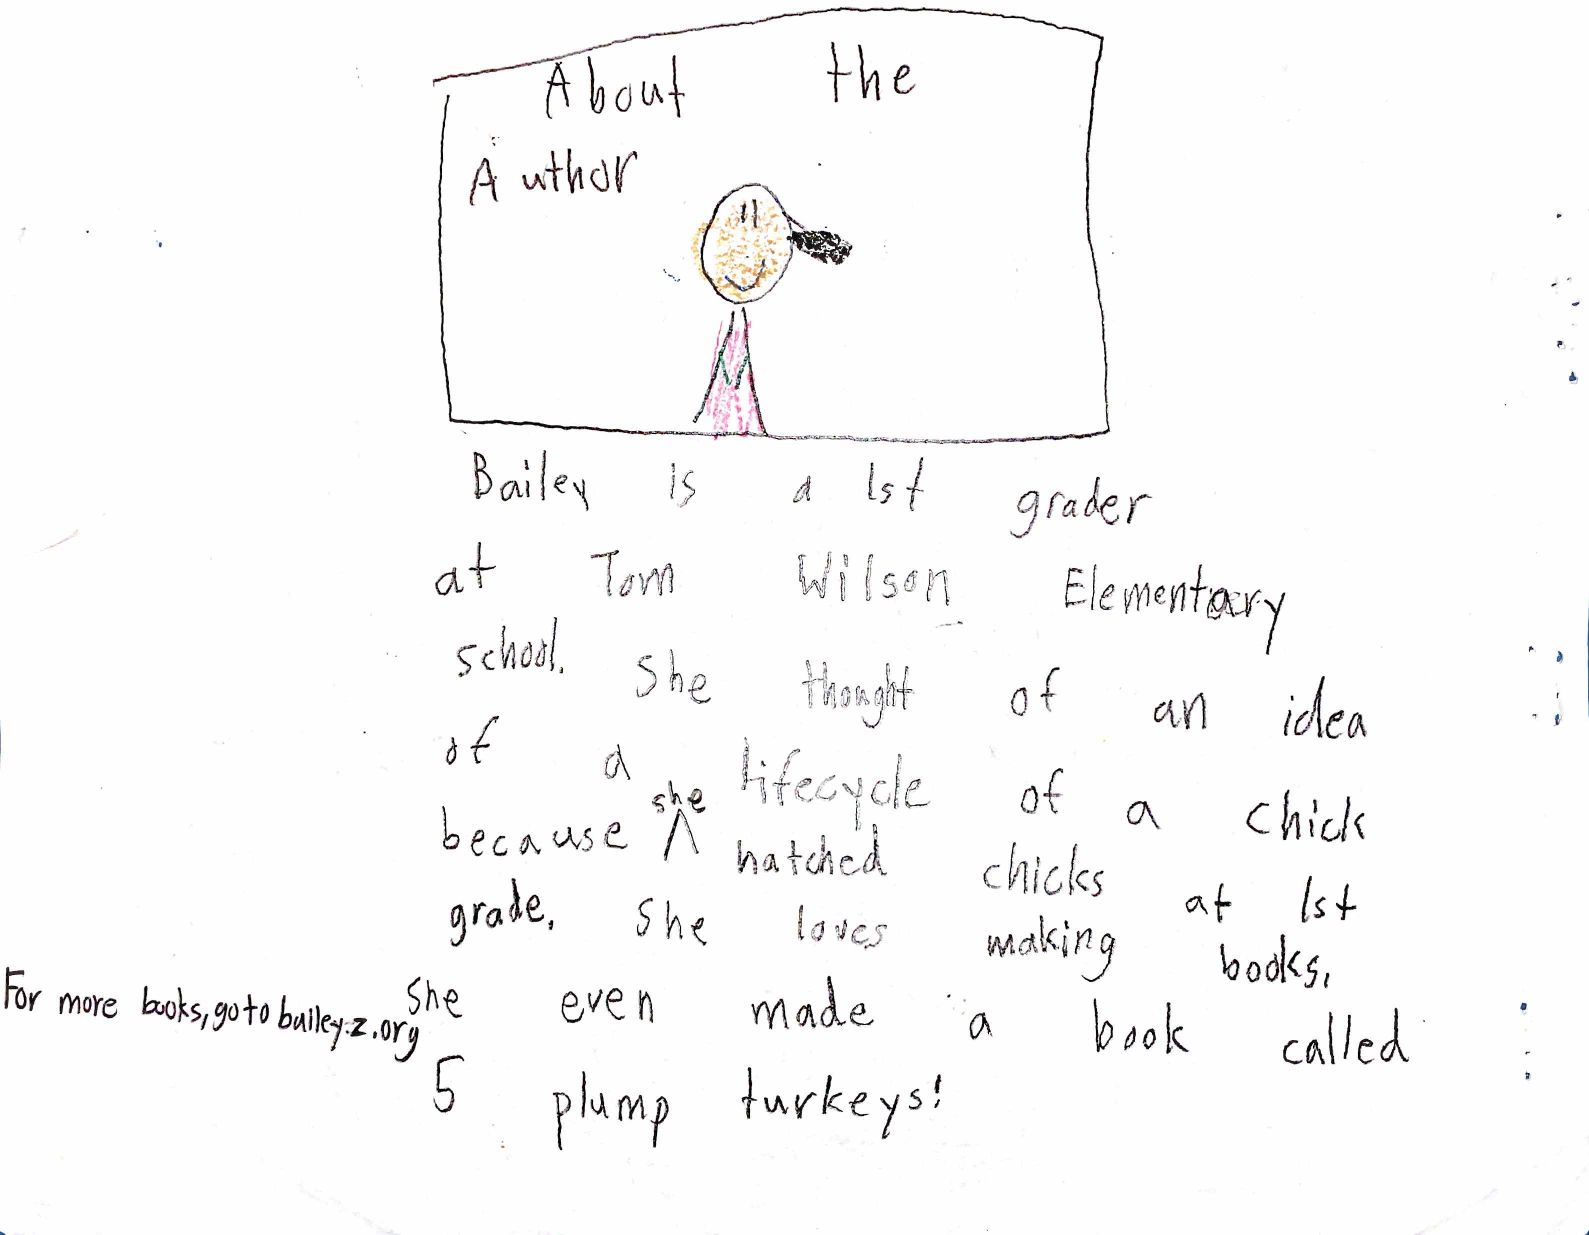 About the
Author
Bailey is a 1st grader
at Tom Wilson Elementary
school. She thought of an idea
of a lifecycle of a chick
because she hatched chicks at 1st
grade. She loves making books.
She even made a book called
5 plump turkeys!
For more books, go to bailey.z.org